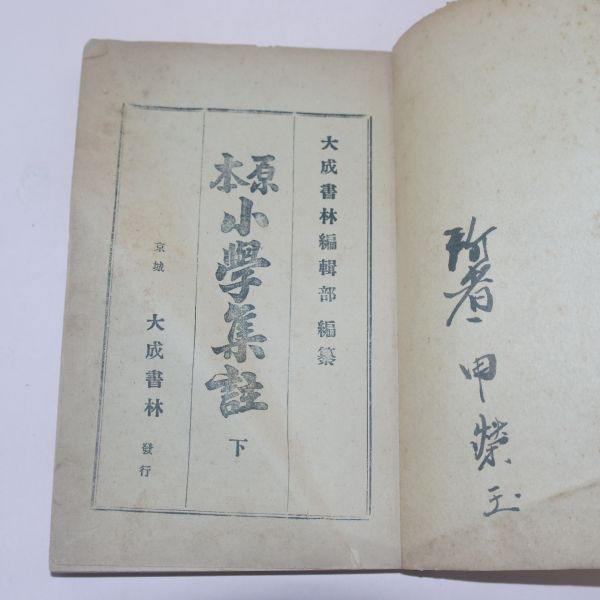 大成書林編輯部 編纂
原本
小學集註 下
京城 大成書林 發行
所者 申榮玉